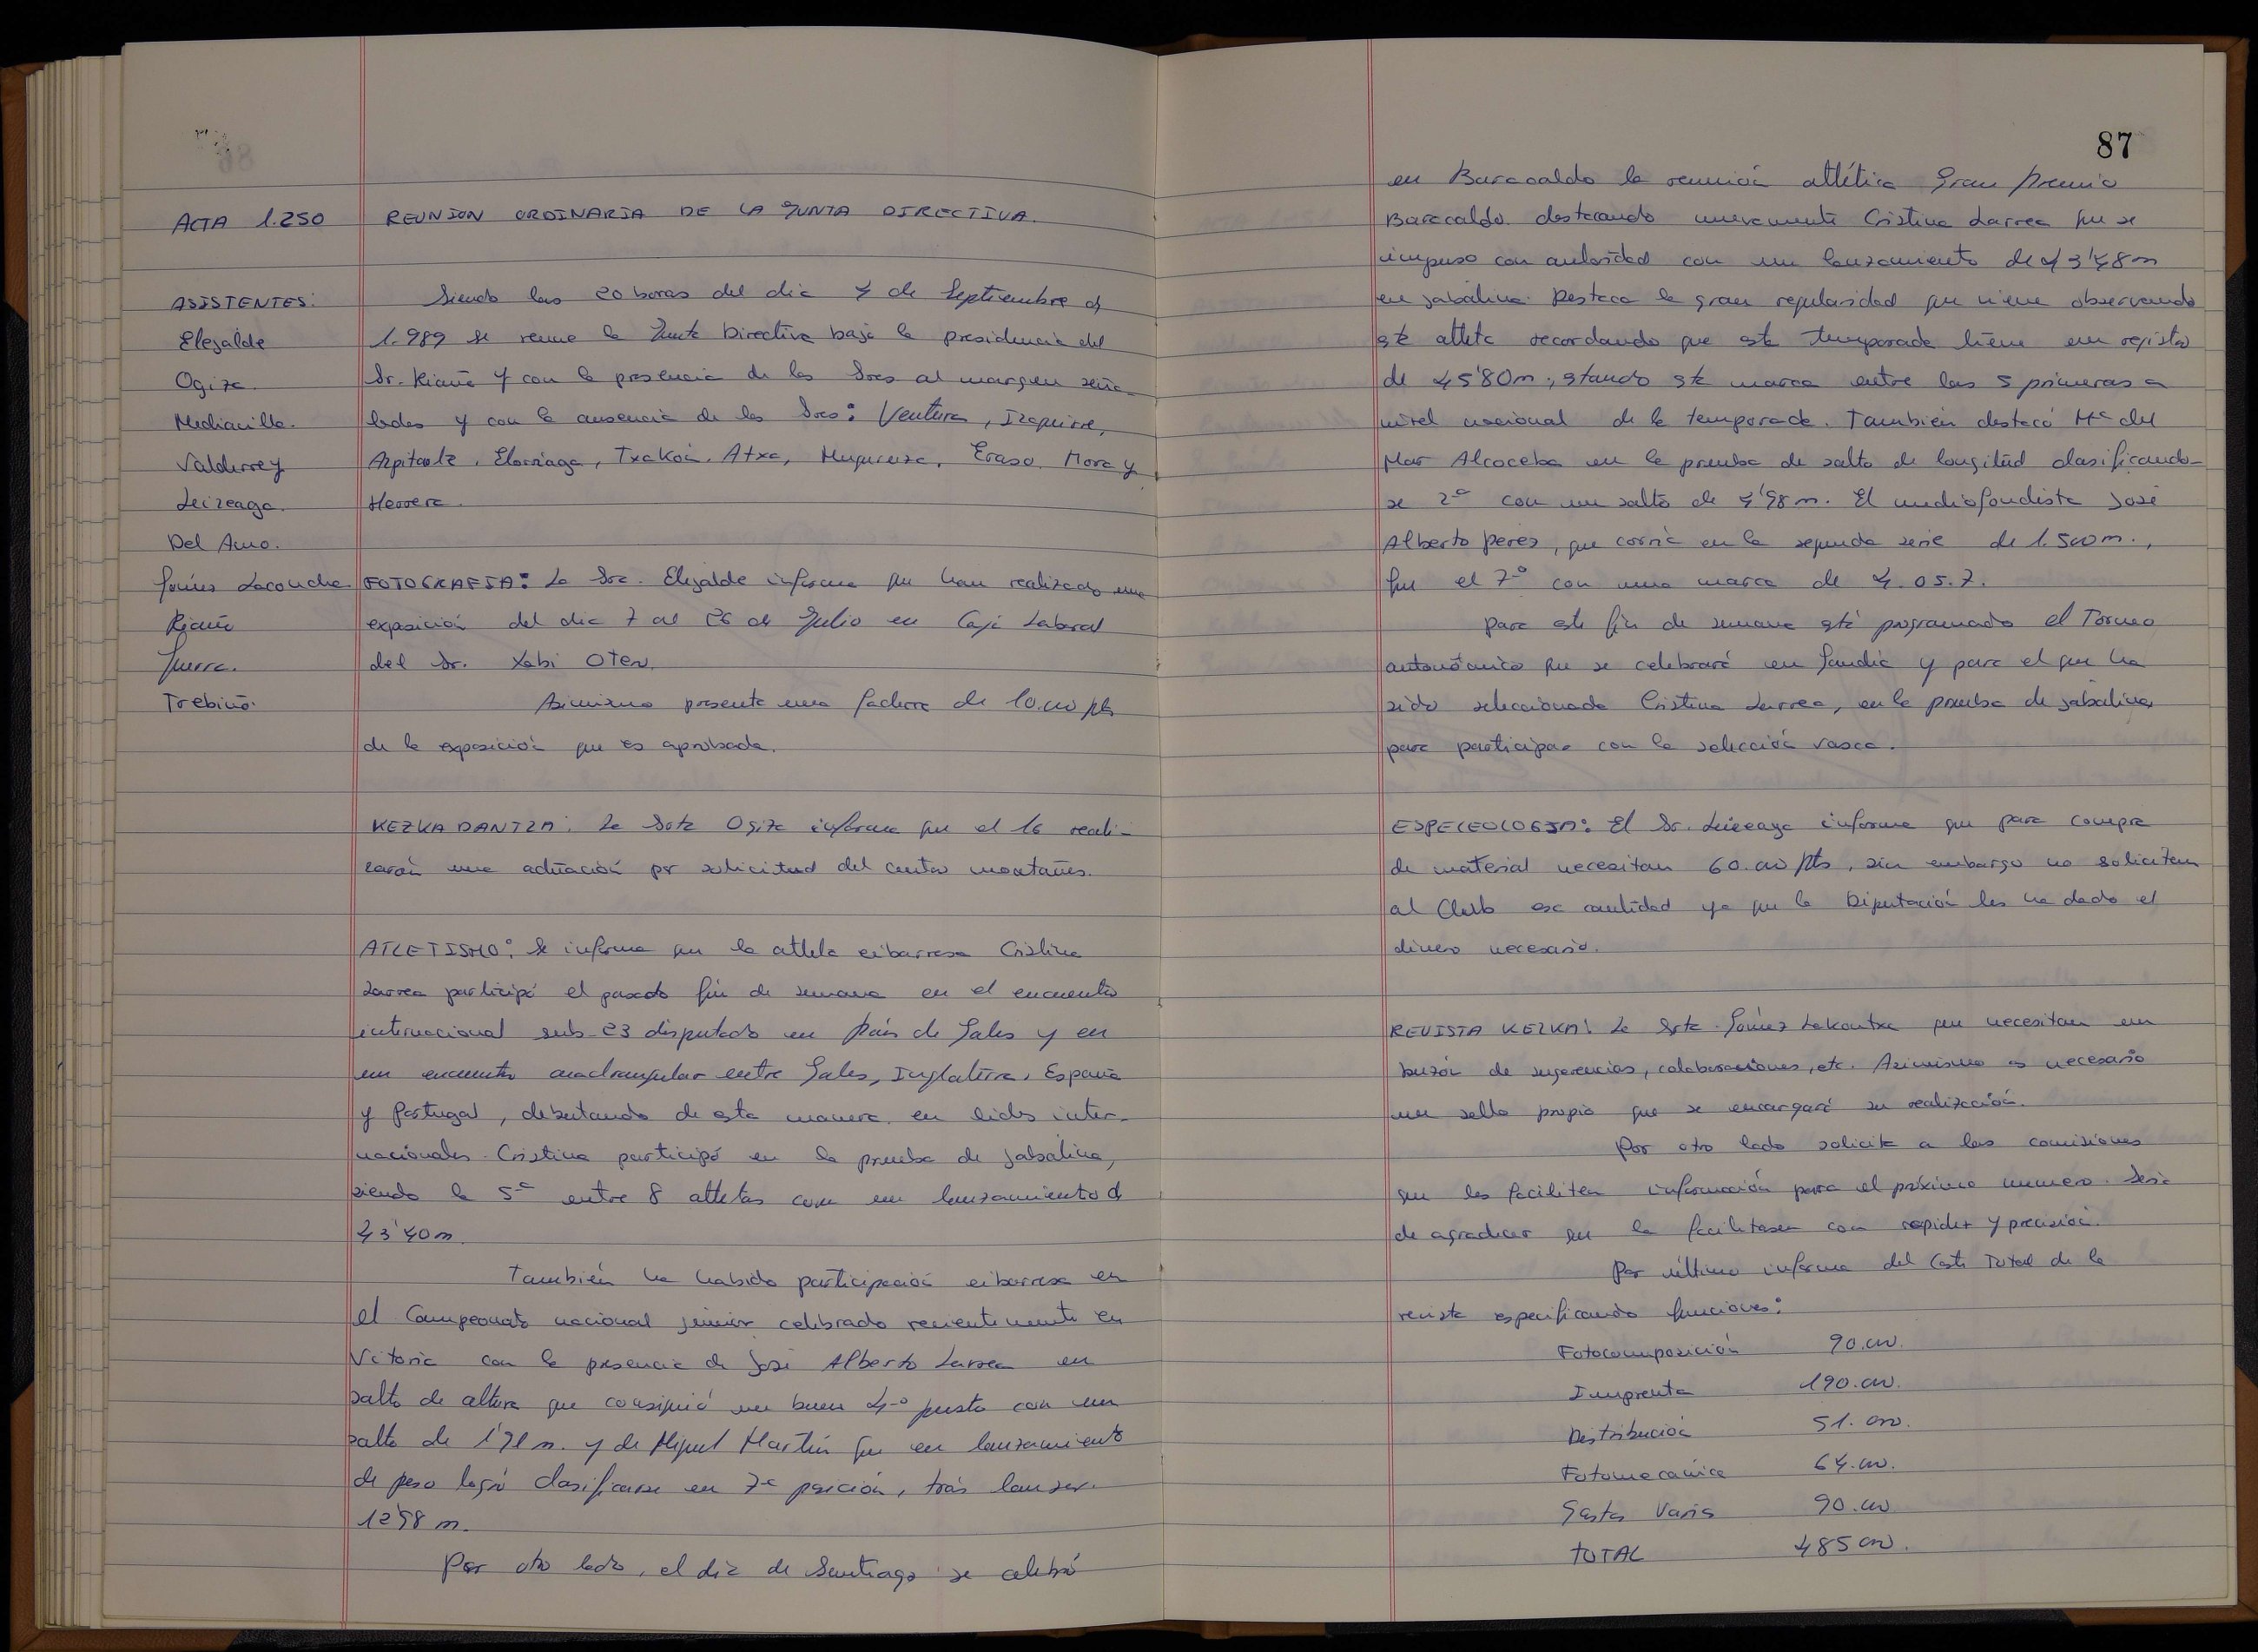 ACTA 1.250 REUNION ORDINARIA DE LA JUNTA DIRECTIVA.
ASISTENTES:
Elejalde
Ogiza.
Mediavilla.
Valderrey
Leizeaga.
Del Amo.
Gómez Lacouche.
Riaño
Guerra.
Trebiño.
Siendo las 20 horas del dia 4 de Septiembre de
1.989 se reune la Junta Directiva bajo la presidencia del
Sr. Riaño y con la presencia de los Sres al margen seña-
lados y con la ausencia de los Sres: Ventura, Izaguirre,
Azpitarte, Elorriaga, Txakoin, Atxa, Muguruza, Eraso, Mora y
Herrera.
FOTOGRAFIA: La Sra. Elejalde informa que han realizado una
exposición del dia 7 al 26 de Julio en Caja Laboral
del Sr. Xabi Oten.
Asimismo presenta una factura de 10.000 pts
de la exposición que es aprobada.
KEZKA DANTZA: La Srta Ogiza informa que el 16 reali-
zarán una actuación por solicitud del centro montañes.
ATLETISMO: Se informa que la atleta eibarresa Cristina
Larrea participó el pasado fin de semana en el encuentro
internacional sub-23 disputado en País de Gales y en
un encuentro cuadrangular entre Gales, Inglaterra, España
y Portugal, debutando de esta manera en lides inter-
nacionales. Cristina participó en la prueba de jabalina,
siendo la 5ª entre 8 atletas con un lanzamiento de
43'40 m.
También ha habido participación eibarresa en
el Campeonato nacional júnior celebrado recientemente en
Vitoria con la presencia de José Alberto Larrea en
salto de altura que consiguió un buen 4º puesto con un
salto de 1'91 m. y de Miguel Martín que en lanzamiento
de peso logró clasificarse en 7ª posición, trás lanzar
12'98 m.
Por otro lado, el día de Santiago se celebró
87
en Baracaldo la reunión atlética Gran Premio
Baracaldo destacando nuevamente Cristina Larrea que se
impuso con autoridad con un lanzamiento de 43'48 m
en jabalina. Destaca la gran regularidad que viene observando
esta atleta recordando que esta temporada tiene un registro
de 45'80 m., estando esta marca entre las 5 primeras a
nivel nacional de la temporada. También destacó Mª del
Mar Alcoceba en la prueba de salto de longitud clasificando-
se 2ª con un salto de 4'98 m. El mediofondista José
Alberto Perez, que corría en la segunda serie de 1.500 m.,
fue el 7º con una marca de 4.05.7.
Para este fin de semana está programado el Torneo
autonómico que se celebrará en Gandía y para el que ha
sido seleccionada Cristina Larrea, en la prueba de jabalina,
para participar con la selección vasca.
ESPELEOLOGIA: El Sr. Leizeaga informa que para compra
de material necesitan 60.000 pts, sin embargo no solicitan
al Club esa cantidad ya que la Diputación les ha dado el
dinero necesario.
REVISTA KEZKA: La Srta Gómez Lakontxa que necesitan un
buzón de sugerencias, colaboraciones, etc. Asimismo es necesario
un sello propio que se encargará su realización.
Por otro lado solicita a las comisiones
que les faciliten información para el próximo numero. Sería
de agradecer que la facilitasen con rapidez y precisión.
Por último informa del Coste Total de la
revista especificando funciones:
Fotocomposición 90.000.
Imprenta 190.000.
Distribución 51.000.
Fotomecánica 64.000.
Gastos Varios 90.000
TOTAL 485.000.